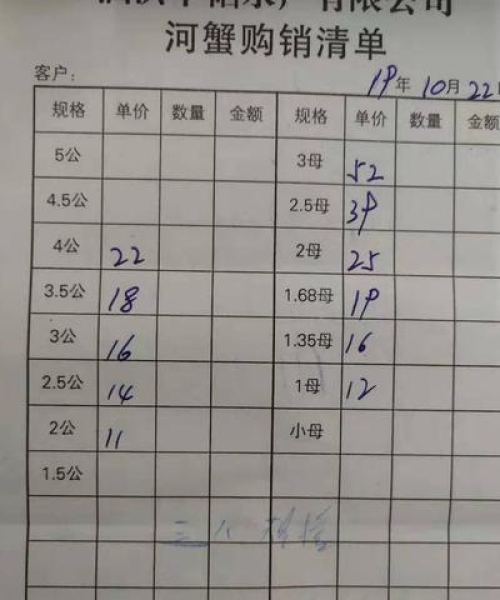 有限公司
河蟹购销清单
客户： 19年10月22日
规格 单价 数量 金额 规格 单价 数量 金额
5公 3母 52
4.5公 2.5母 39
4公 22 2母 25
3.5公 18 1.68母 19
3公 16 1.35母 16
2.5公 14 1母 12
2公 11 小母
1.5公